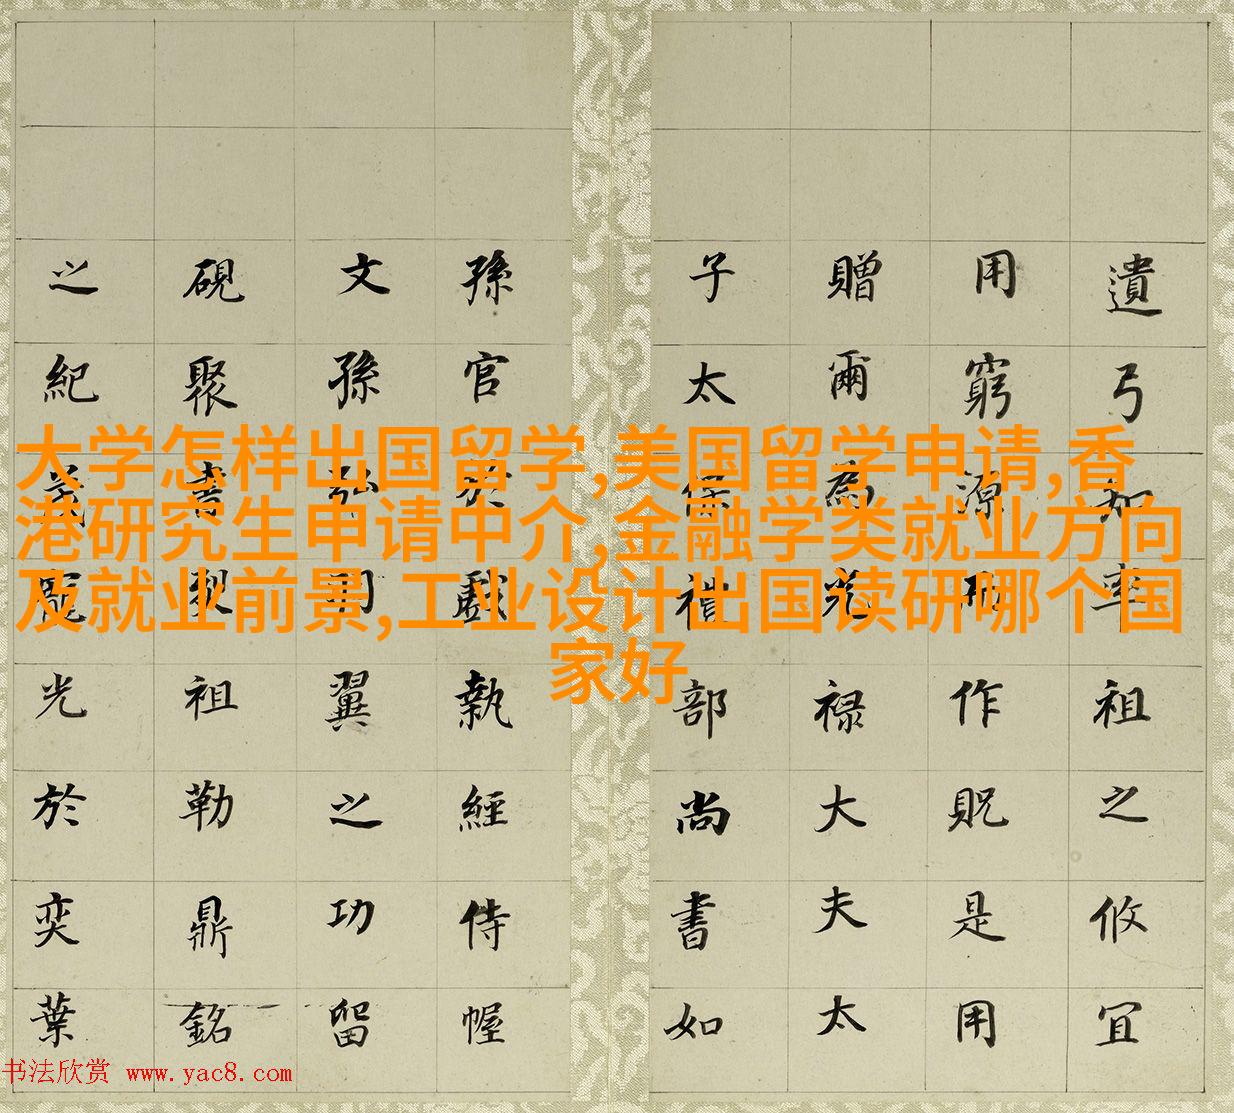 大学怎样出国留学,美国留学申请,香
港研究生申请中介,金融学类就业方向
及就业前景,工业设计出国读研哪个国
家好
遺弓知率祖之攸宜
用窮源而作貺是用
贈爾為光禄大夫太
子太保禮部尚書如
孫官於戲執經侍幄
文孫弘羽翼之功留
硯聚書烈祖勒鼎銘
之紀光於奕葉
书法欣赏 www.yac8.com